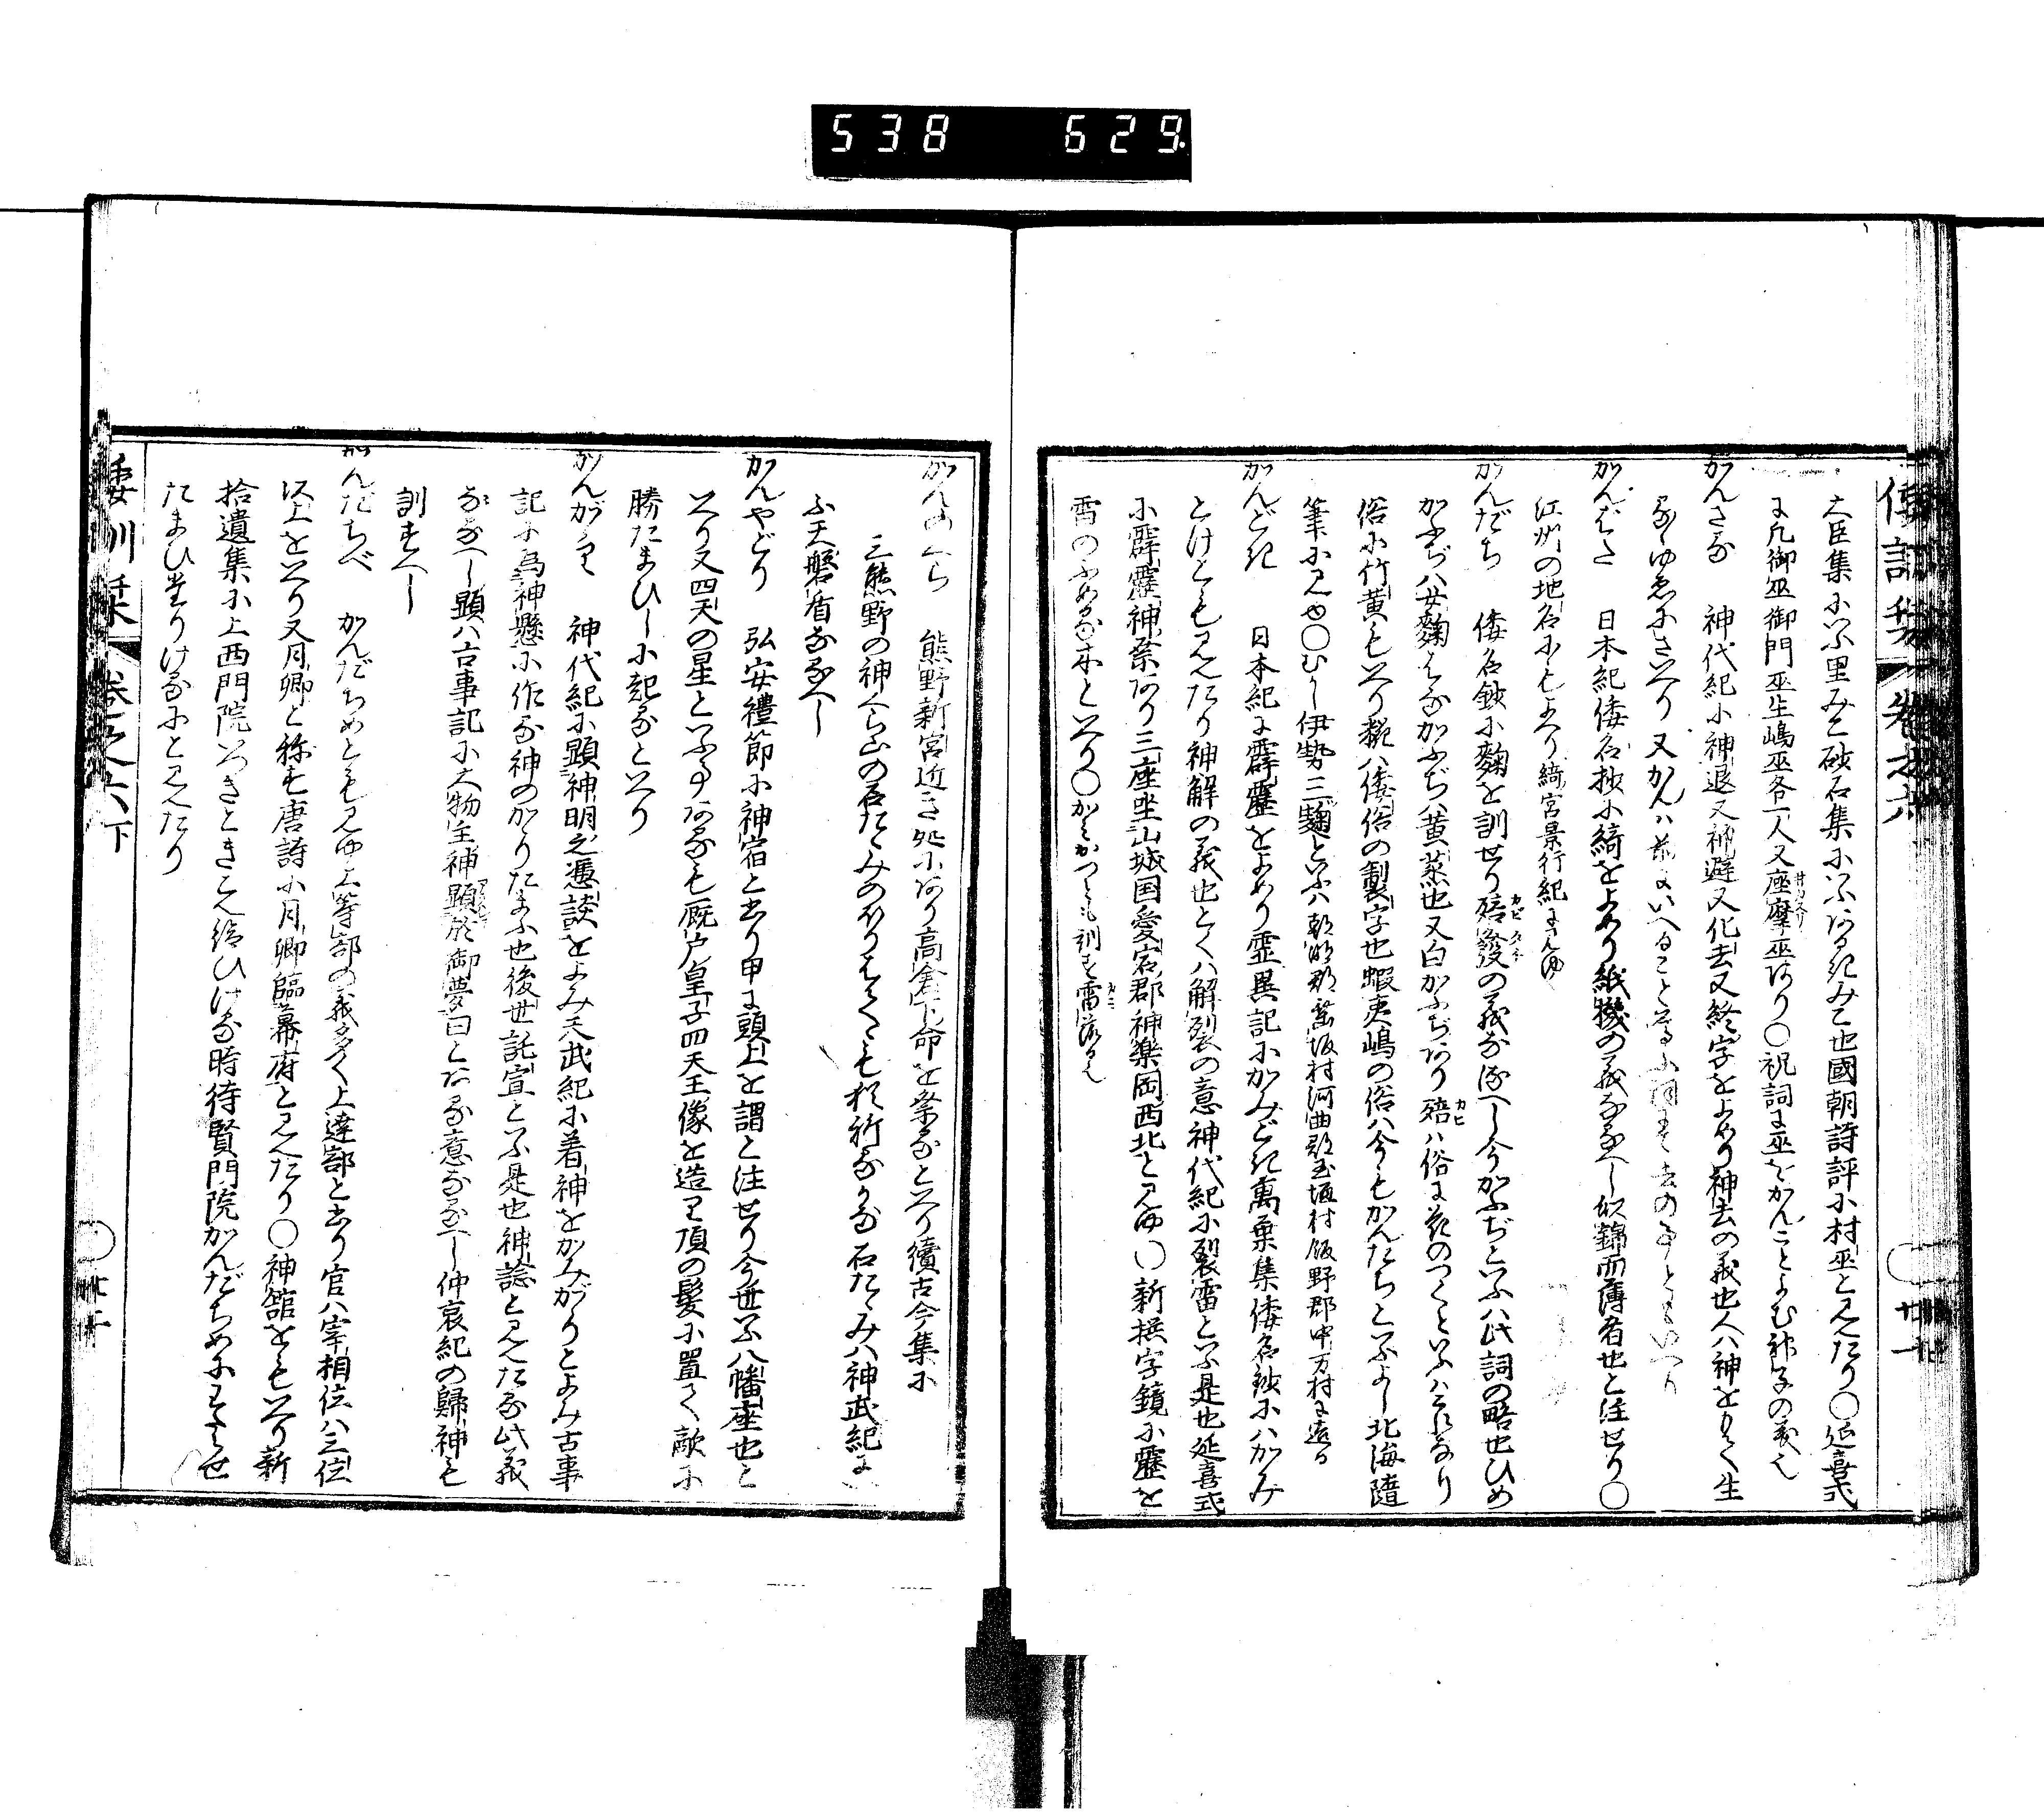 538 629
倭訓栞 卷之六
大臣集にいふ里みこ砂石集にいふあるきみこ也國朝詩評に村巫と見えたり〇延喜式
に凡御巫御門巫生嶋巫各一人又座摩巫あり〇祝詞に巫をかんことよむ神子の義也
かんさる 神代紀に神退又神避又化去又終字をよめり神去の義也人ハ神をもて生
るゝゆゑにさいへり又かんハ
かんはた 日本紀倭名抄に綺をよめり紙機の義なるへし似錦而薄者也と注せり〇
江州の地名にもよへり綺宮景行紀に見ゆ
かんだち 倭名鈔に麹を訓せり殕發の義なるへし今かふぢといふハ此詞の略也ひめ
かふぢハ女麹也なるかふぢハ黄蒸也又白かふぢあり殕ハ俗に花のつくといふハこれなり
俗に竹黄もいへり糀ハ倭俗の製字也蝦夷嶋の俗ハ今もかんたちといふよし北海隨
筆に見ゆ〇むかし伊勢三麹といふハ朝明郡 坂村河曲郡玉垣村飯野郡中万村に造る
かんどき 日本紀に霹靂をよめり霊異記にかみどき萬葉集倭名鈔にハかみ
とけとも見えたり神解の義也とくハ解裂の意神代紀に裂雷といふ是也延喜式
に霹靂神祭あり三座坐山城国愛宕郡神楽岡西北と見ゆ〇新撰字鏡に靂を
雷のふめる木といへり〇かミおつとも訓す雷落る也
かんのくら 熊野新宮近き処にあり高倉下命を祭るといへり續古今集に
三熊野の神くら山の石たゝみのほりはてゝも猶祈るかな石たゝみハ神武紀に
ふ天磐盾なるへし
かんやどり 弘安禮節に神宿と書り甲に頭上を謂と注せり今世いふ八幡座也と
いへり又四天の星といふ事あるも厩戸皇子四天王像を造りて頂の髪に置て敵に
勝たまひしに起るといへり
かんがゝり 神代紀に顕神明之憑談をよみ天武紀に着神をかみがゝりとよみ古事
記に為神懸に作る神のかゝりたまふ也後世託宣といふ是也神諗と見えたる此義
なるへし顕ハ古事記に大物主神顕於御夢曰とある意なるへし仲哀紀の歸神も
訓すへし
かんだちべ かんだちめとも見ゆ上等部の義多く上達部と書り官ハ宰相位ハ三位
以上をいへり又月卿と称す唐詩に月卿臨幕府と見えたり〇神舘をもいへり新
拾遺集に上西門院いつきときこえ給ひける時待賢門院かんだちめにわたらせ
たまひたりけるにと見えたり
倭訓栞 卷之六下